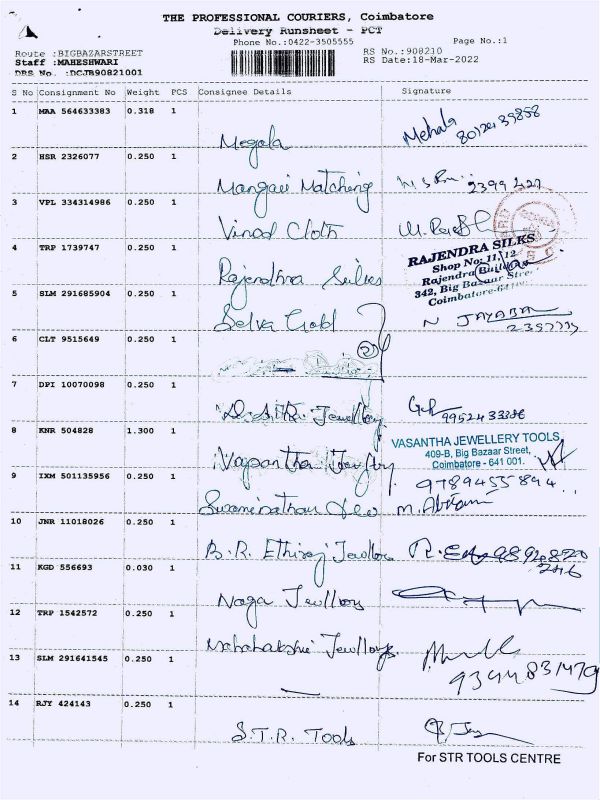 THE PROFESSIONAL COURIERS, Coimbatore
Delivery Runsheet - PCT
Phone No.:0422-3505555
Page No.:1
Route :BIGBAZARSTREET
RS No.:908210
Staff :MAHESHWARI
RS Date:18-Mar-2022
DRS No. :DCJB90821001
S No Consignment No Weight PCS Consignee Details Signature
1 MAA 564633383 0.318 1
Megala Mehala
2 HSR 2326077 0.250 1
Mangai Matching 2399427
3 VPL 334314986 0.250 1
Vinod Cloth
4 TRP 1739747 0.250 1
Rajendhra Silks
RAJENDRA SILKS
Shop No: 11, 12
Rajendra Buildings
342, Big Bazaar Street
Coimbatore-
5 SLM 291685904 0.250 1
Selva Gold N JAYABAL
6 CLT 9515649 0.250 1
7 DPI 10070098 0.250 1
Jewellery
8 KNR 504828 1.300 1
Vasantha Jewellry
VASANTHA JEWELLERY TOOLS
409-B, Big Bazaar Street,
Coimbatore - 641 001.
9 IXM 501135956 0.250 1
9789455894
Swaminathan
10 JNR 11018026 0.250 1
B.R. Ethiraj Jewellers
11 KGD 556693 0.030 1
Naga Jewllors
12 TRP 1542572 0.250 1
Mahalakshi Jewllorys
13 SLM 291641545 0.250 1
14 RJY 424143 0.250 1
S.T.R. Tools
For STR TOOLS CENTRE